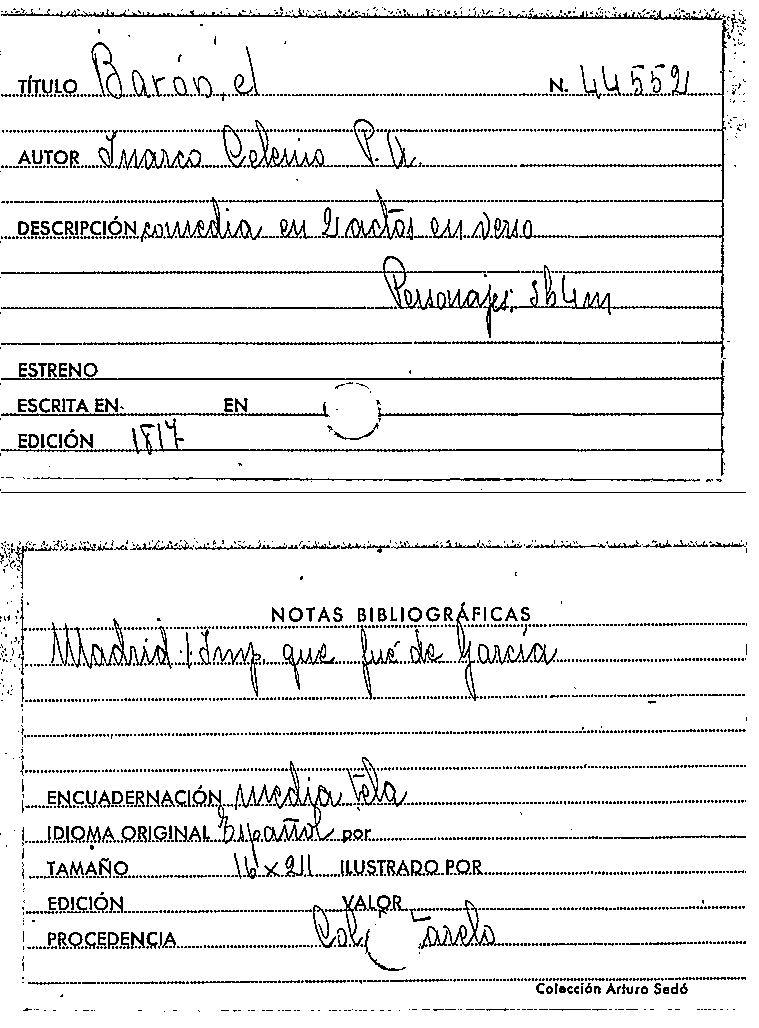 TÍTULO Barón, el N. 44552
AUTOR Inarco Celenio P.A.
DESCRIPCIÓN comedia en 2 actos en verso
Personajes: 3h 4m
ESTRENO
ESCRITA EN. EN
EDICIÓN 1817
NOTAS BIBLIOGRÁFICAS
Madrid / Imp que fué de García
ENCUADERNACIÓN media tela
IDIOMA ORIGINAL Español por
TAMAÑO 16 x 21 ILUSTRADO POR
EDICIÓN VALOR
PROCEDENCIA
Colección Arturo Sedó